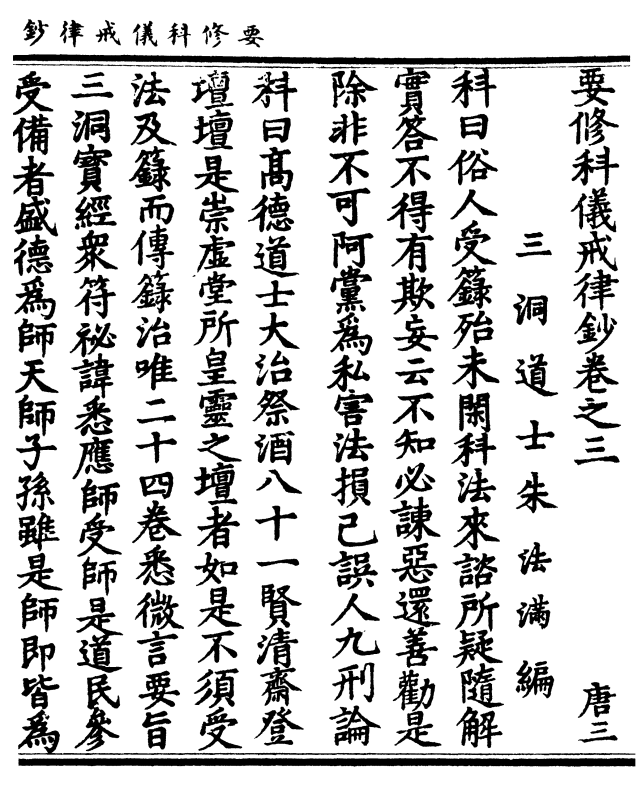 要修科儀戒律鈔
要修科儀戒律鈔卷之三 唐三
三洞道士朱法滿編
科曰俗人受籙殆未閑科法來諮所疑隨解
實答不得有欺妄云不知必諫惡還善勸是
除非不可阿黨為私害法損己誤人九刑論
科曰高德道士大治祭酒八十一賢清齋登
壇壇是崇虛堂所皇靈之壇者如是不須受
法及籙而傳籙治唯二十四卷悉微言要旨
三洞寶經眾符祕諱悉應師受師是道民參
受備者盛德為師天師子孫雖是師即皆為